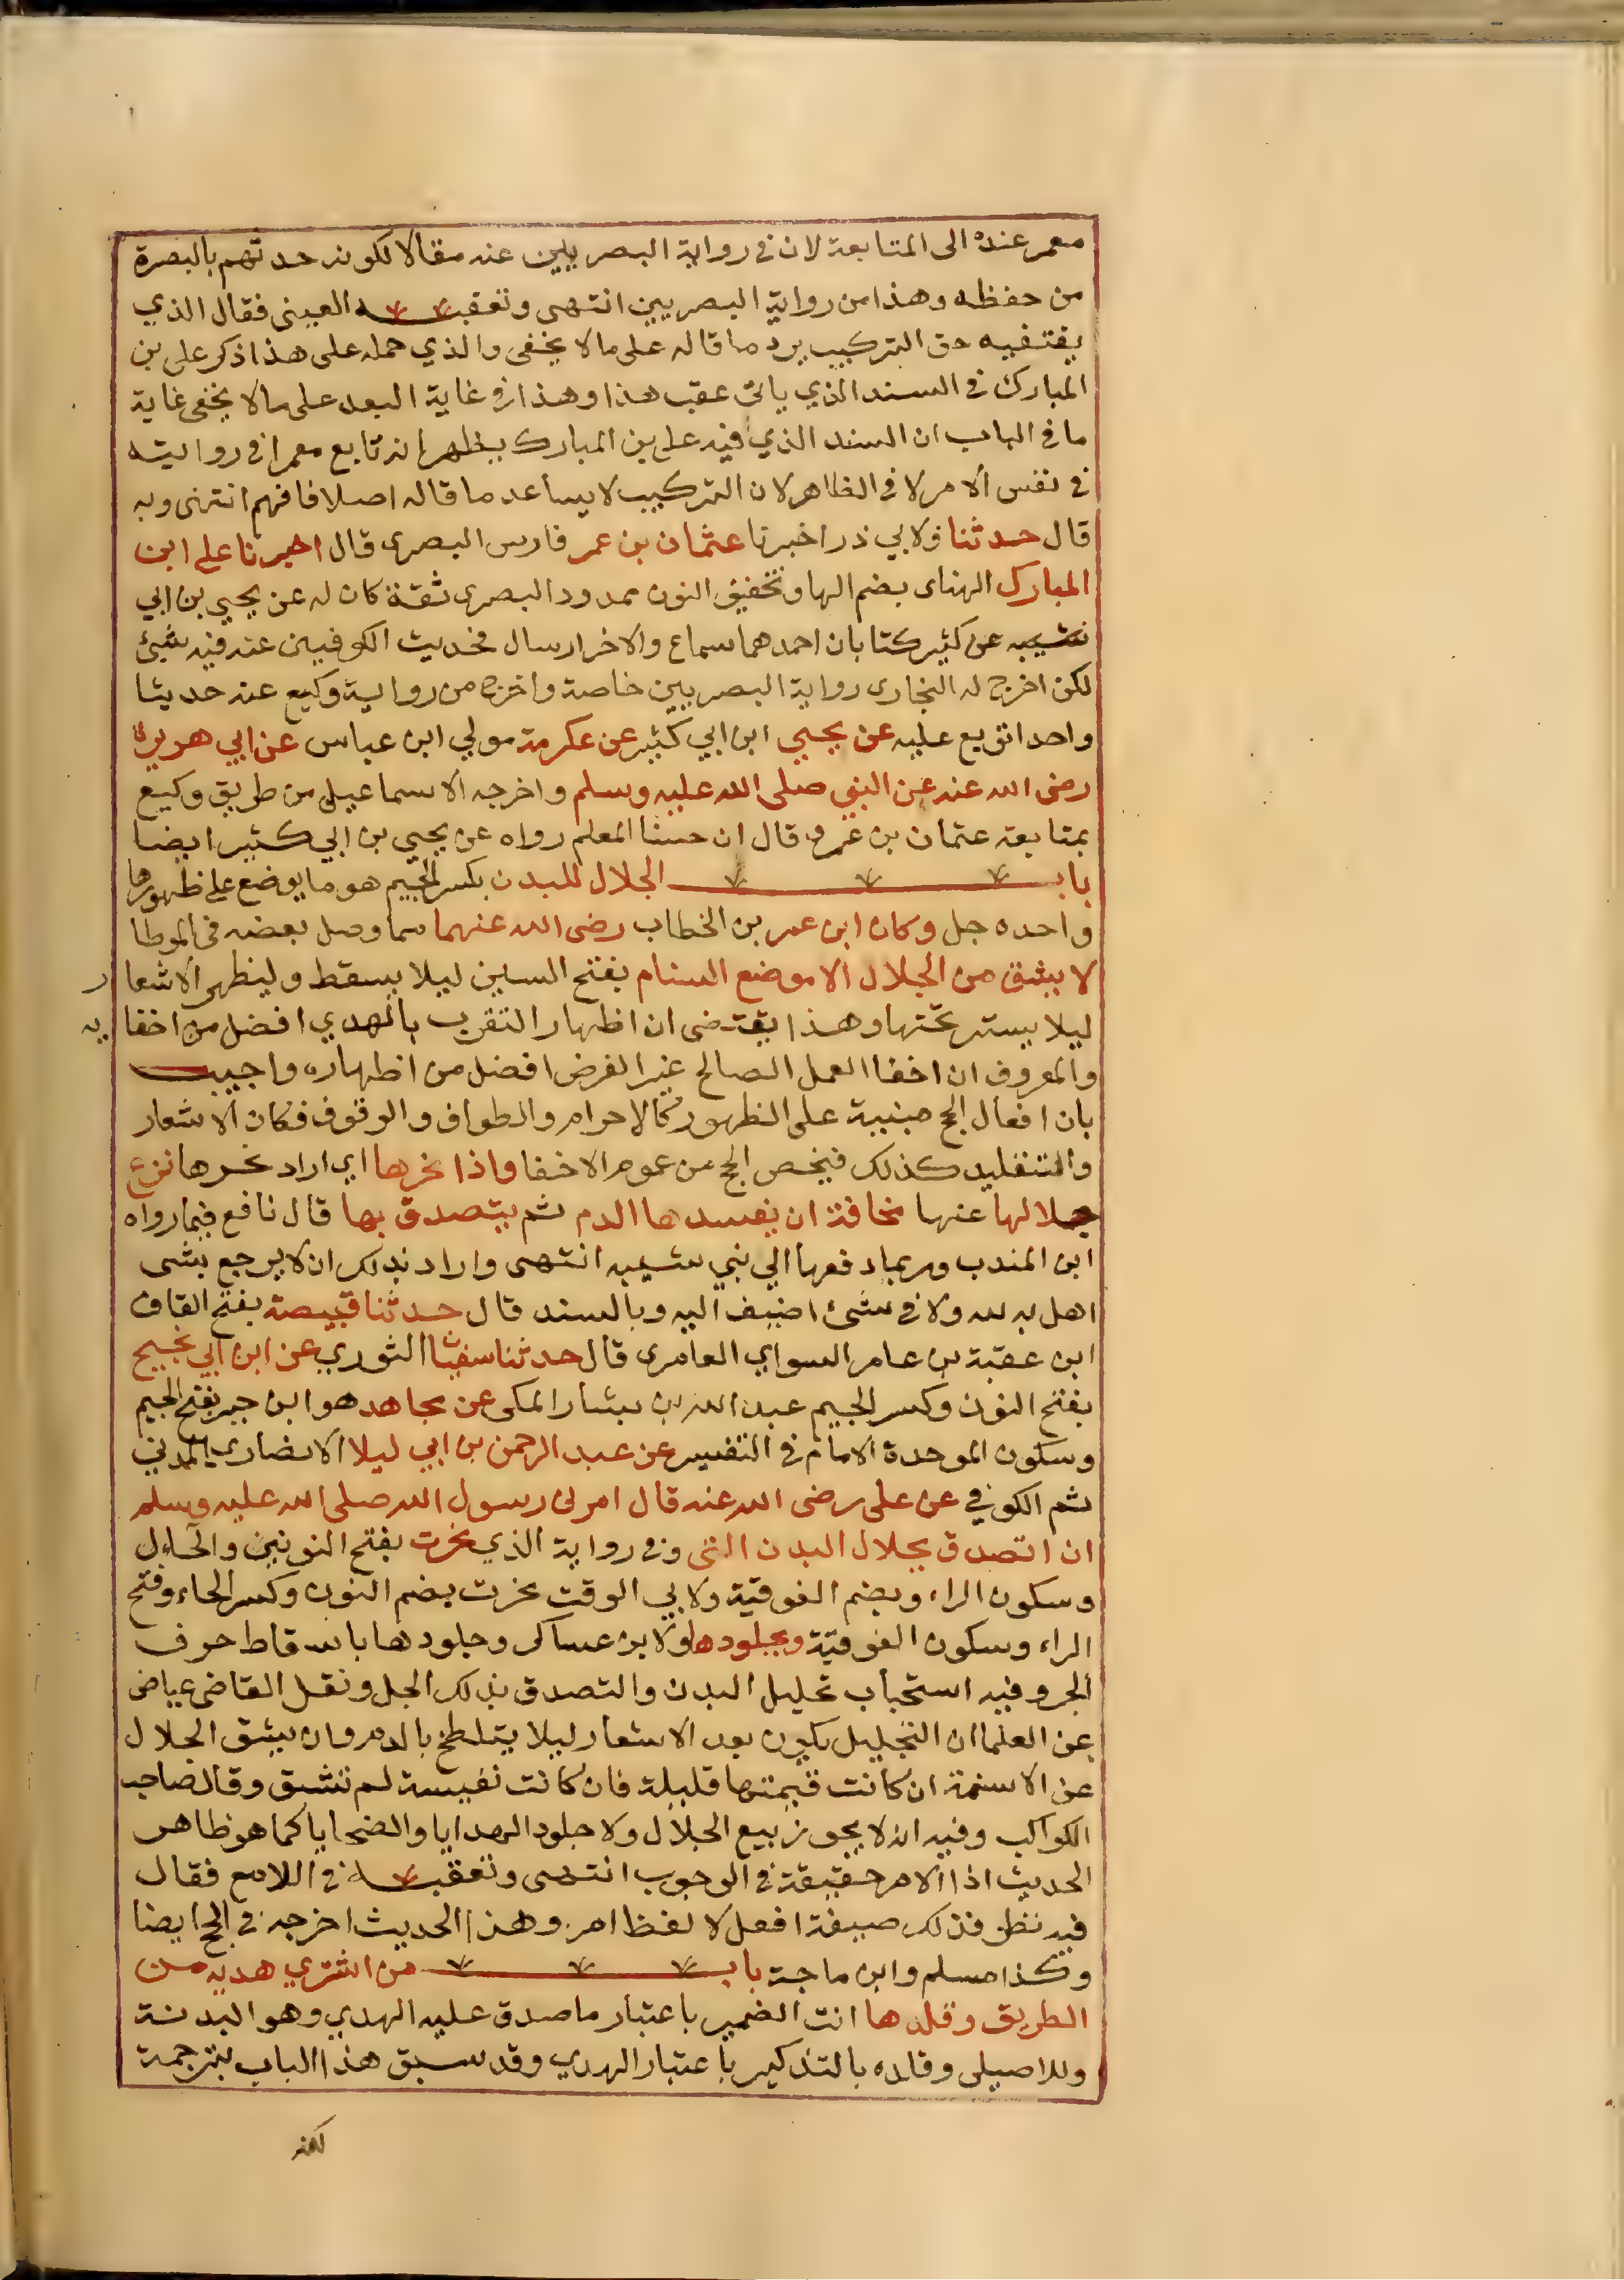 معمر عنده الى المتابعة لان في رواية البصريين عنه مقالا لكونه حدثهم بالبصرة
من حفظه وهذا من رواية البصريين انتهى وتعقبه العينى فقال الذي
يقتضيه حق التركيب يرد ما قاله على ما لا يخفى والذي حمله على هذا ذكر على بن
المبارك في السند الذي ياتى عقب هذا وهذا في غاية البعد على ما لا يخفى غاية
ما في الباب ان السند الذي فيه على بن المبارك يظهر انه تابع معمرا في روايته
في نفس الامر لا في الظاهر لان التركيب لا يساعد ما قاله اصلا فافهم انتهى وبه
قال حدثنا ولابي ذر اخبرنا عثمان بن عمر فارس البصرى قال اخبرنا على ابن
المبارك الهناى بضم الها وتخفيف النون ممدود البصرى ثقة كان له عن يحيى بن ابي
كثير كتابان احدهما سماع والاخر ارسال فحديث الكوفيين عنه فيه شيئ
لكن اخرج له البخارى رواية البصريين خاصة واخرج من رواية وكيع عنه حديثا
واحدا توبع عليه عن يحيى ابن ابي كثير عن عكرمة مولي ابن عباس عن ابي هريرة
رضى الله عنه عن النبي صلى الله عليه وسلم واخرجه الاسماعيلي من طريق وكيع
بمتابعة عثمان بن عمر وقال ان حسنا المعلم رواه عن يحيى بن ابي كثير ايضا
باب الجلال للبدن بكسر الجيم هو ما يوضع على ظهورها
واحده جل وكان ابن عمر بن الخطاب رضى الله عنهما مما وصل بعضه في الموطا
لا يشق من الجلال الا موضع السنام بفتح السين ليلا يسقط وليظهر الاشعار
ليلا يستر تحتها وهذا يقتضى ان اظهار التقرب بالهدي افضل من اخفايه
والمعروف ان اخفا العمل الصالح غير الفرض افضل من اظهاره واجيب
بان افعال الحج مبنية على الظهور كالاحرام والطواف والوقوف فكان الاشعار
والتقليد كذلك فيخص الحج من عموم الاخفا واذا نحرها اي اراد نحرها نزع
جلالها عنها مخافة ان يفسدها الدم ثم يتصدق بها قال نافع فيما رواه
ابن المندب وربما دفعها الي بني شيبه انتهى واراد بذلك ان لا يرجع بشى
اهل به لله ولا في شئ اضيف اليه وبالسند قال حدثنا قبيصة بفتح القاف
ابن عقبة بن عامر السواي العامرى قال حدثنا سفيان الثوري عن ابن ابي نجيح
بفتح النون وكسر الجيم عبد الله بن يسار المكى عن مجاهد هو ابن جبر بفتح الجيم
وسكون الموحدة الامام في التفسير عن عبد الرحمن بن ابي ليلا الانصاري المدني
ثم الكوفي عن على رضى الله عنه قال امرنى رسول الله صلى الله عليه وسلم
ان اتصدق بجلال البدن التى وفى رواية الذي نحرت بفتح النونين والحاء
وسكون الراء وبضم الفوقية ولابي الوقت نحرت بضم النون وكسر الحاء وفتح
الراء وسكون الفوقية وبجلودها ولابن عساكر وجلودها باسقاط حرف
الجر وفيه استحباب تجليل البدن والتصدق بذلك الجل ونقل القاضى عياض
عن العلما ان التجليل يكون بعد الاشعار ليلا يتلطخ بالدم وان يشق الجلال
عن الاسنمة ان كانت قيمتها قليلة فان كانت نفيسة لم تشق وقال صاحب
الكواكب وفيه انه لا يجوز بيع الجلال ولا جلود الهدايا والضحايا كما هو ظاهر
الحديث اذا الامر حقيقة في الوجوب انتهى وتعقبه في اللامع فقال
فيه نظر فذلك صيغة افعل لا لفظ امر وهذا الحديث اخرجه في الحج ايضا
وكذا مسلم وابن ماجة باب من اشترى هديه من
الطريق وقلدها انث الضمير باعتبار ما صدق عليه الهدي وهو البدنة
وللاصيلى وقلده بالتذكير باعتبار الهدي وقد سبق هذا الباب بترجمة
لكنه